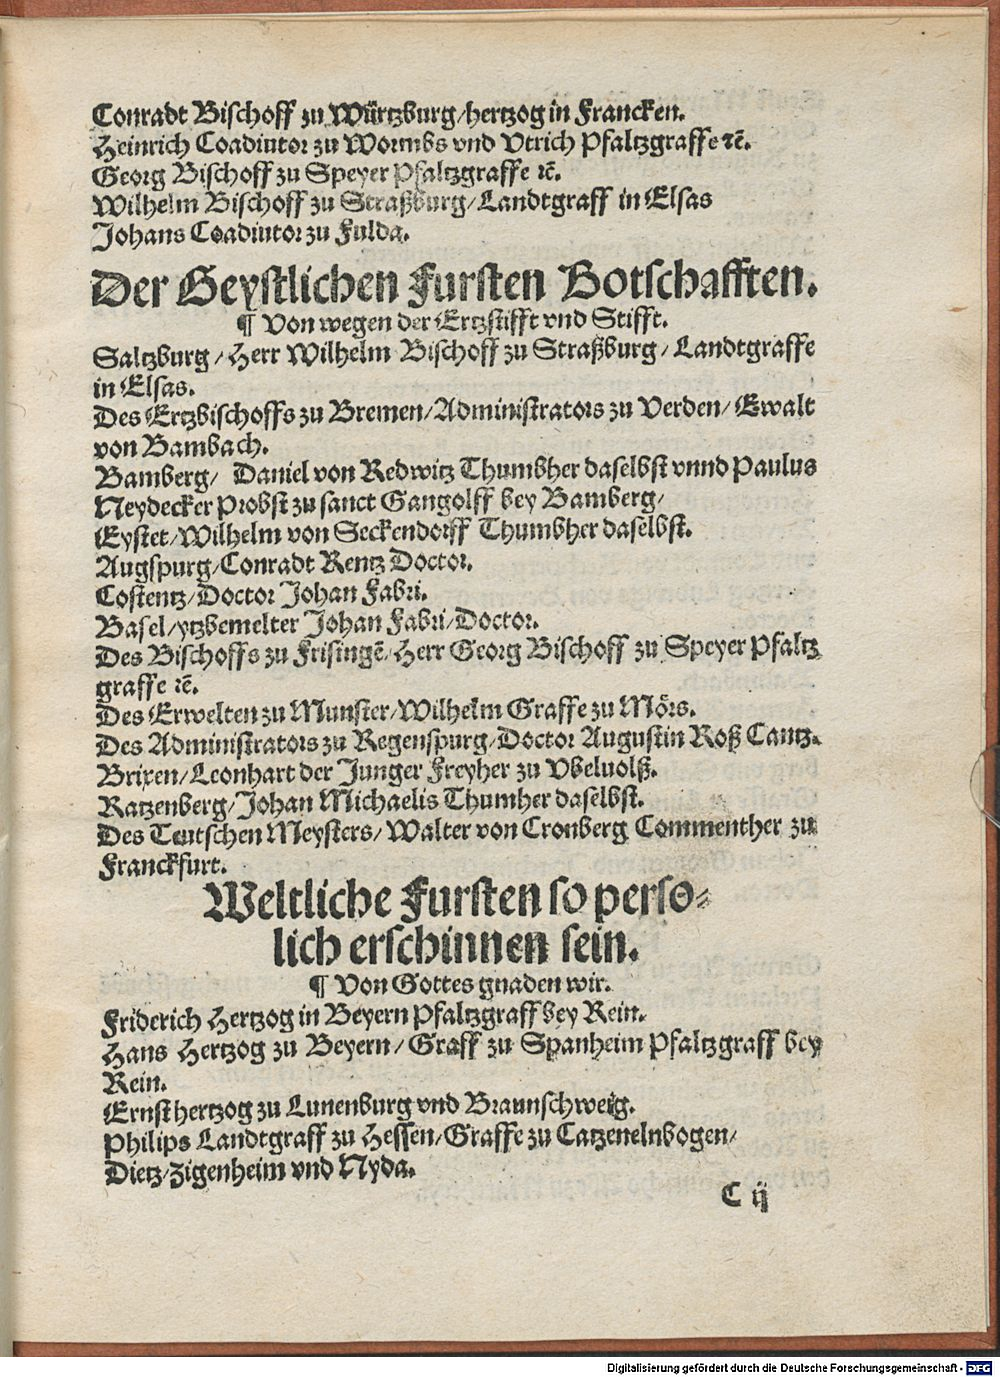 Conradt Bischoff zu Würtzburg/hertzog in Francken.
Heinrich Coadiutor zu Wormbs vnd Vtrich Pfaltzgraffe ꝛc̃.
Georg Bischoff zu Speyer Pfaltzgraffe ꝛc̃.
Wilhelm Bischoff zu Straßburg/Landtgraff in Elsas
Johans Coadiutor zu Fulda.
Der Geystlichen Fursten Botschafften.
¶ Von wegen der Ertzstifft vnd Stifft.
Saltzburg/Herr Wilhelm Bischoff zu Straßburg/Landtgraffe
in Elsas.
Des Ertzbischoffs zu Bremen/Administrators zu Verden/Ewalt
von Bambach.
Bamberg/ Daniel von Redwitz Thumbher daselbst vnnd Paulus
Neydecker Probst zu sanct Gangolff bey Bamberg/
Eystet/Wilhelm von Seckendorff Thumbher daselbst.
Augspurg/Conradt Rentz Doctor.
Costentz/Doctor Johan Fabri.
Basel/ytzbemelter Johan Fabri/Doctor.
Des Bischoffs zu Frisingẽ/Herr Georg Bischoff zu Speyer Pfaltz
graffe ꝛc̃.
Des Erwelten zu Munster/Wilhelm Graffe zu Mörs.
Des Administrators zu Regenspurg/Doctor Augustin Roß Cantz.
Brixen/Leonhart der Junger Freyher zu Vbeluolß.
Ratzenberg/Johan Michaelis Thumher daselbst.
Des Teutschen Meysters/Walter von Cronberg Commenther zu
Franckfurt.
Weltliche Fursten so perso⸗
lich erschinnen sein.
¶ Von Gottes gnaden wir.
Friderich Hertzog in Beyern Pfaltzgraff bey Rein.
Hans Hertzog zu Beyern/Graff zu Spanheim Pfaltzgraff bey
Rein.
Ernst hertzog zu Lunenburg vnd Braunschweig.
Philips Landtgraff zu Hessen/Graffe zu Catzenelnbogen/
Dietz/Zigenheim vnd Nyda.
C ij
Digitalisierung gefördert durch die Deutsche Forschungsgemeinschaft - DFG